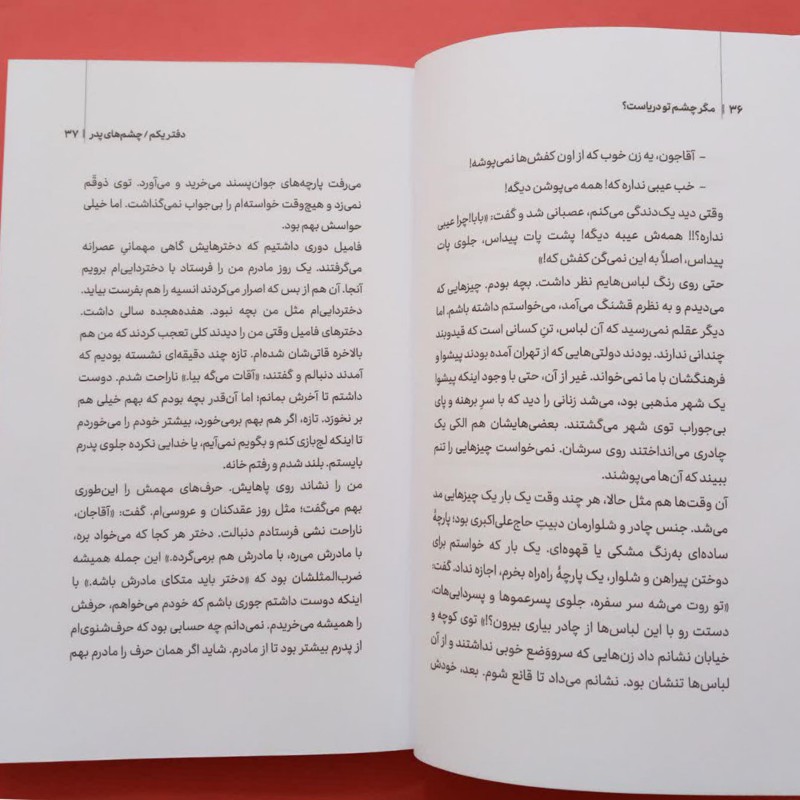 ۳۶ | مگر چشم تو دریاست؟
- آقاجون، یه زن خوب که از اون کفش‌ها نمی‌پوشه!
- خب عیبی نداره که! همه می‌پوشن دیگه!
وقتی دید یک‌دندگی می‌کنم، عصبانی شد و گفت: «بابا!چرا عیبی
نداره؟!! همه‌ش عیبه دیگه! پشت پات پیداس، جلوی پات
پیداس، اصلاً به این نمی‌گن کفش که!»
حتی روی رنگ لباس‌هایم نظر داشت. بچه بودم. چیزهایی که
می‌دیدم و به نظرم قشنگ می‌آمد، می‌خواستم داشته باشم. اما
دیگر عقلم نمی‌رسید که آن لباس، تنِ کسانی است که قیدوبند
چندانی ندارند. بودند دولتی‌هایی که از تهران آمده بودند پیشوا و
فرهنگشان با ما نمی‌خواند. غیر از آن، حتی با وجود اینکه پیشوا
یک شهر مذهبی بود، می‌شد زنانی را دید که با سرِ برهنه و پای
بی‌جوراب توی شهر می‌گشتند. بعضی‌هایشان هم الکی یک
چادری می‌انداختند روی سرشان. نمی‌خواست چیزهایی را تنم
ببیند که آن‌ها می‌پوشند.
آن وقت‌ها هم مثل حالا، هر چند وقت یک بار یک چیزهایی مد
می‌شد. جنس چادر و شلوارمان دبیتِ حاج‌علی‌اکبری بود؛ پارچهٔ
ساده‌ای به‌رنگ مشکی یا قهوه‌ای. یک بار که خواستم برای
دوختن پیراهن و شلوار، یک پارچهٔ راه‌راه بخرم، اجازه نداد. گفت:
«تو روت می‌شه سر سفره، جلوی پسرعموها و پسردایی‌هات،
دستت رو با این لباس‌ها از چادر بیاری بیرون؟!» توی کوچه و
خیابان نشانم داد زن‌هایی که سرووَضع خوبی نداشتند و از آن
لباس‌ها تنشان بود. نشانم می‌داد تا قانع شوم. بعد، خودش
دفتر یکم / چشم‌های پدر | ۳۷
می‌رفت پارچه‌های جوان‌پسند می‌خرید و می‌آورد. توی ذوقَم
نمی‌زد و هیچ‌وقت خواسته‌ام را بی‌جواب نمی‌گذاشت. اما خیلی
حواسش بهم بود.
فامیل دوری داشتیم که دخترهایش گاهی مهمانیِ عصرانه
می‌گرفتند. یک روز مادرم من را فرستاد با دختردایی‌ام برویم
آنجا. آن هم از بس که اصرار می‌کردند انسیه را هم بفرست بیاید.
دختردایی‌ام مثل من بچه نبود. هفده‌هجده سالی داشت.
دخترهای فامیل وقتی من را دیدند کلی تعجب کردند که من هم
بالاخره قاتی‌شان شده‌ام. تازه چند دقیقه‌ای نشسته بودیم که
آمدند دنبالم و گفتند: «آقات می‌گه بیا.» ناراحت شدم. دوست
داشتم تا آخرش بمانم؛ اما آن‌قدر بچه بودم که بهم خیلی هم
بر نخورَد. تازه، اگر هم بهم برمی‌خورد، بیشتر خودم را می‌خوردم
تا اینکه لج‌بازی کنم و بگویم نمی‌آیم، یا خدایی نکرده جلوی پدرم
بایستم. بلند شدم و رفتم خانه.
من را نشاند روی پاهایش. حرف‌های مهمش را این‌طوری
بهم می‌گفت؛ مثل روز عقدکنان و عروسی‌ام. گفت: «آقاجان،
ناراحت نشی فرستادم دنبالت. دختر هر کجا که می‌خواد بره،
با مادرش می‌ره، با مادرش هم برمی‌گرده.» این جمله همیشه
ضرب‌المثلشان بود که «دختر باید متکای مادرش باشه.» با
اینکه دوست داشتم جوری باشم که خودم می‌خواهم، حرفش
را همیشه می‌خریدم. نمی‌دانم چه حسابی بود که حرف‌شنوی‌ام
از پدرم بیشتر بود تا از مادرم. شاید اگر همان حرف را مادرم بهم